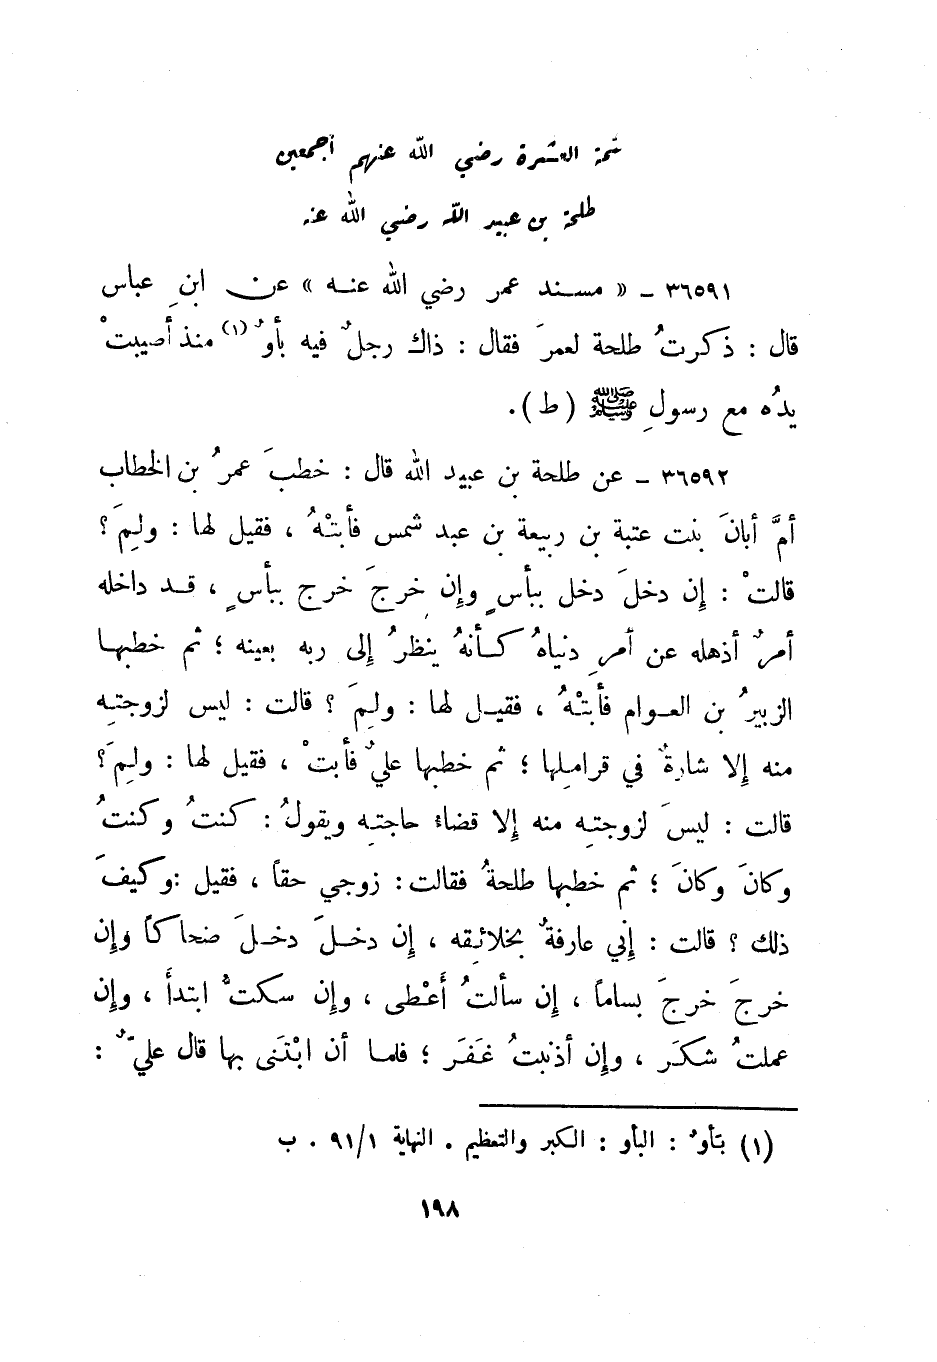 تتمة العشرة رضي الله عنهم أجمعين
طلحة بن عبيد الله رضي الله عنه
٣٦٥٩١ ـ « مسند عمر رضي الله عنه » عن ابنِ عباس
قال : ذكرتُ طلحة لعمرَ فقال : ذاك رجلٌ فيه بأوٌ (١) منذ أصيبتْ
يدُه مع رسولِ ﷺ (ط).
٣٦٥٩٢ ـ عن طلحة بن عبيد الله قال : خطبَ عمرُ بن الخطاب
أمَّ أبانَ بنت عتبة بن ربيعة بن عبد شمس فأبتْهُ ، فقيل لها : ولِمَ ؟
قالتْ : إن دخلَ دخل ببأسٍ وإن خرجَ خرج ببأسٍ ، قد داخله
أمرٌ أذهله عن أمرِ دنياهُ كأنهُ ينظرُ إلى ربه بعينه ؛ ثم خطبها
الزبيرُ بن العوام فأبتْهُ ، فقيل لها : ولِمَ ؟ قالت : ليس لزوجتِه
منه إلا شارةٌ في قراملِها ؛ ثم خطبها عليٌ فأبتْ ، فقيل لها : ولِمَ ؟
قالت : ليسَ لزوجتِه منه إلا قضاءُ حاجتِه ويقولُ : كنتُ وكنتُ
وكانَ وكانَ ؛ ثم خطبها طلحةُ فقالت : زوجي حقاً ، فقيل : وكيفَ
ذلك ؟ قالت : إني عارفةٌ بخلائِقه ، إن دخلَ دخلَ ضحاكاً وإن
خرجَ خرجَ بساماً ، إن سألتُ أَعْطى ، وإن سكتُّ ابتدأَ ، وإن
عملتُ شكَر ، وإن أذنبتُ غَفَر ؛ فلما أن ابْتَنى بها قال عليٌّ :
(١) بَأوٌ : البأو : الكبر والتعظيم . النهاية ٩١/١ . ب
١٩٨